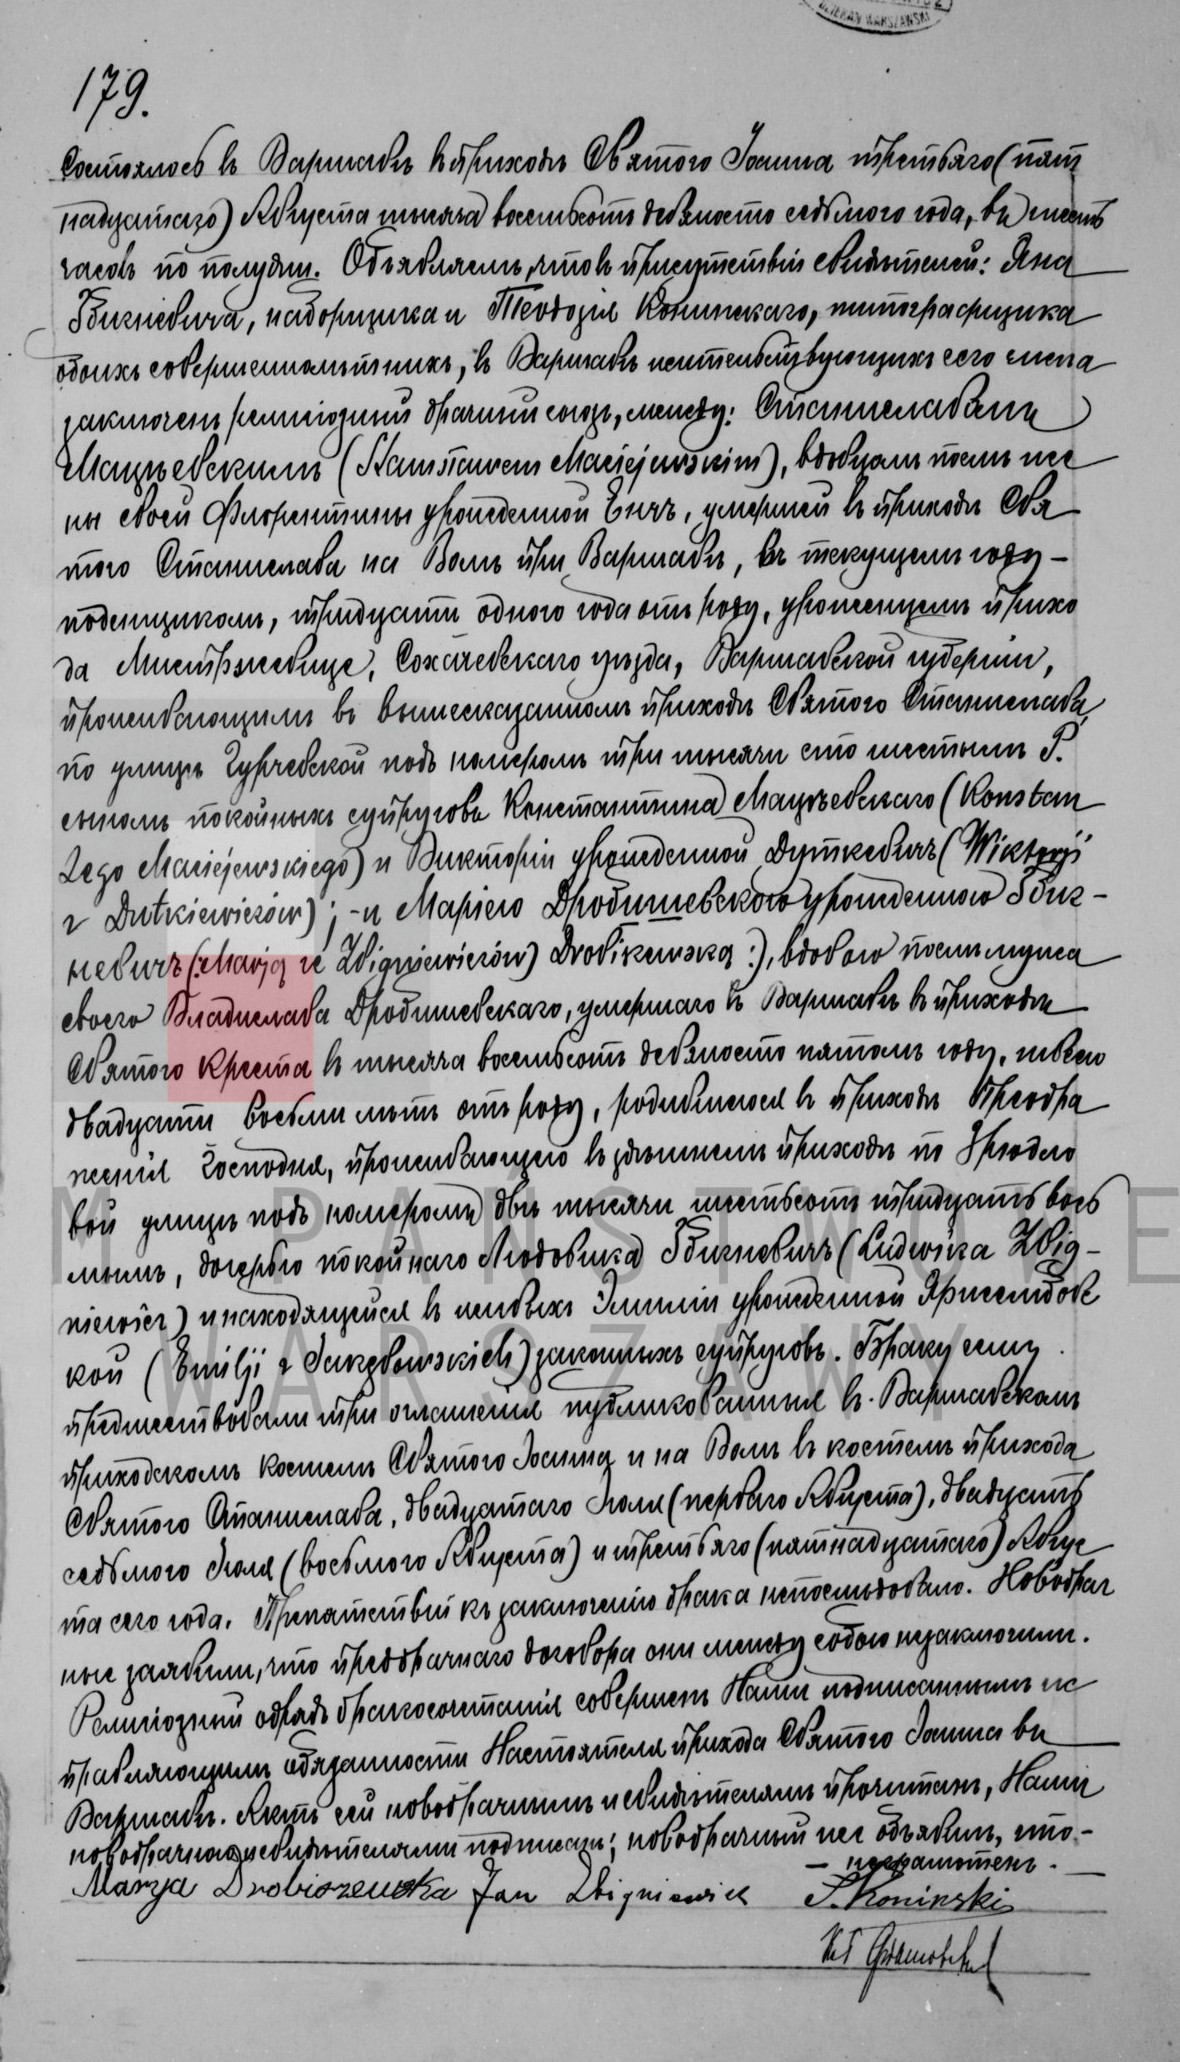 DZIEKAN WARSZAWSKI
179.
Состоялось въ Варшавѣ въ приходѣ Святого Іоанна третьяго (пят
надцатаго) Августа тысяча восемьсотъ девяносто седьмого года, въ шесть
часовъ по полудни. Объявляемъ, что въ присутствіи свидѣтелей: Яна
Збигневича, наборщика и Теодозія Конинскаго, типографщика
обоихъ совершеннолѣтнихъ, въ Варшавѣ жительствующихъ сего числа
заключенъ религіозный брачный союзъ, между: Станиславомъ
Мацѣевскимъ (Stanisławem Maciejewskim), вдовцомъ послѣ же
ны своей Флорентины урожденной, умершей въ приходѣ Свя
того Станислава на Волѣ при Варшавѣ, въ текущемъ году –
поденщикомъ, тридцати одного года отъ роду, уроженцемъ прихо
да Мистржевице, Сохачевскаго уѣзда, Варшавской губерніи,
проживающимъ въ вышесказанномъ приходѣ Святого Станислава,
по улицѣ Гурчевской подъ номеромъ три тысячи сто шестымъ Р.
сыномъ покойныхъ супруговъ Константина Мацѣевскаго (Konstan
tego Maciejewskiego) и Викторіи урожденной Дуткевичъ (Wiktorji
z Dutkiewiczów); – и Маріею Дробишевскою урожденною Збиг-
невичъ (:Marją ze Zbigniewiczów) Drobiszewską :), вдовою послѣ мужа
своего Владислава Дробишевскаго, умершаго въ Варшавѣ въ приходѣ
Святого Креста въ тысяча восемьсотъ девяносто пятомъ году, швеею
двадцати восьми лѣтъ отъ роду, родившеюся въ приходѣ Преобра
женія Господня, проживающею въ здѣшнемъ приходѣ по Брюдло
вой улицѣ подъ номеромъ двѣ тысячи шестьсотъ тридцать вось
мымъ, дочерью покойнаго Людовика Збигневичъ (Ludwika Zbig-
niewicz) и находящейся въ живыхъ Эмиліи урожденной
кой (Emilji z) законныхъ супруговъ. Браку сему
предшествовали три оглашенія публикованныя въ Варшавскомъ
приходскомъ костелѣ Святого Іоанна и на Волѣ въ костелѣ прихода
Святого Станислава, двадцатаго Іюля (перваго Августа), двадцать
седьмого Іюля (восьмого Августа) и третьяго (пятнадцатаго) Авгус
та сего года. Препятствій къ заключенію брака непослѣдовало. Новобрач
ные заявили, что предбрачнаго договора они между собою незаключили.
Религіозный обрядъ бракосочетанія совершенъ Нами подписаннымъ ис
правляющимъ обязанности Настоятеля прихода Святого Іоанна въ
Варшавѣ. Актъ сей новобрачнымъ и свидѣтелямъ прочитанъ, Нами
новобрачною и свидѣтелями подписанъ; новобрачный же объявилъ, что-
– неграмотенъ. –
Marya Drobiszewska Jan Zbigniewicz T. Koninski